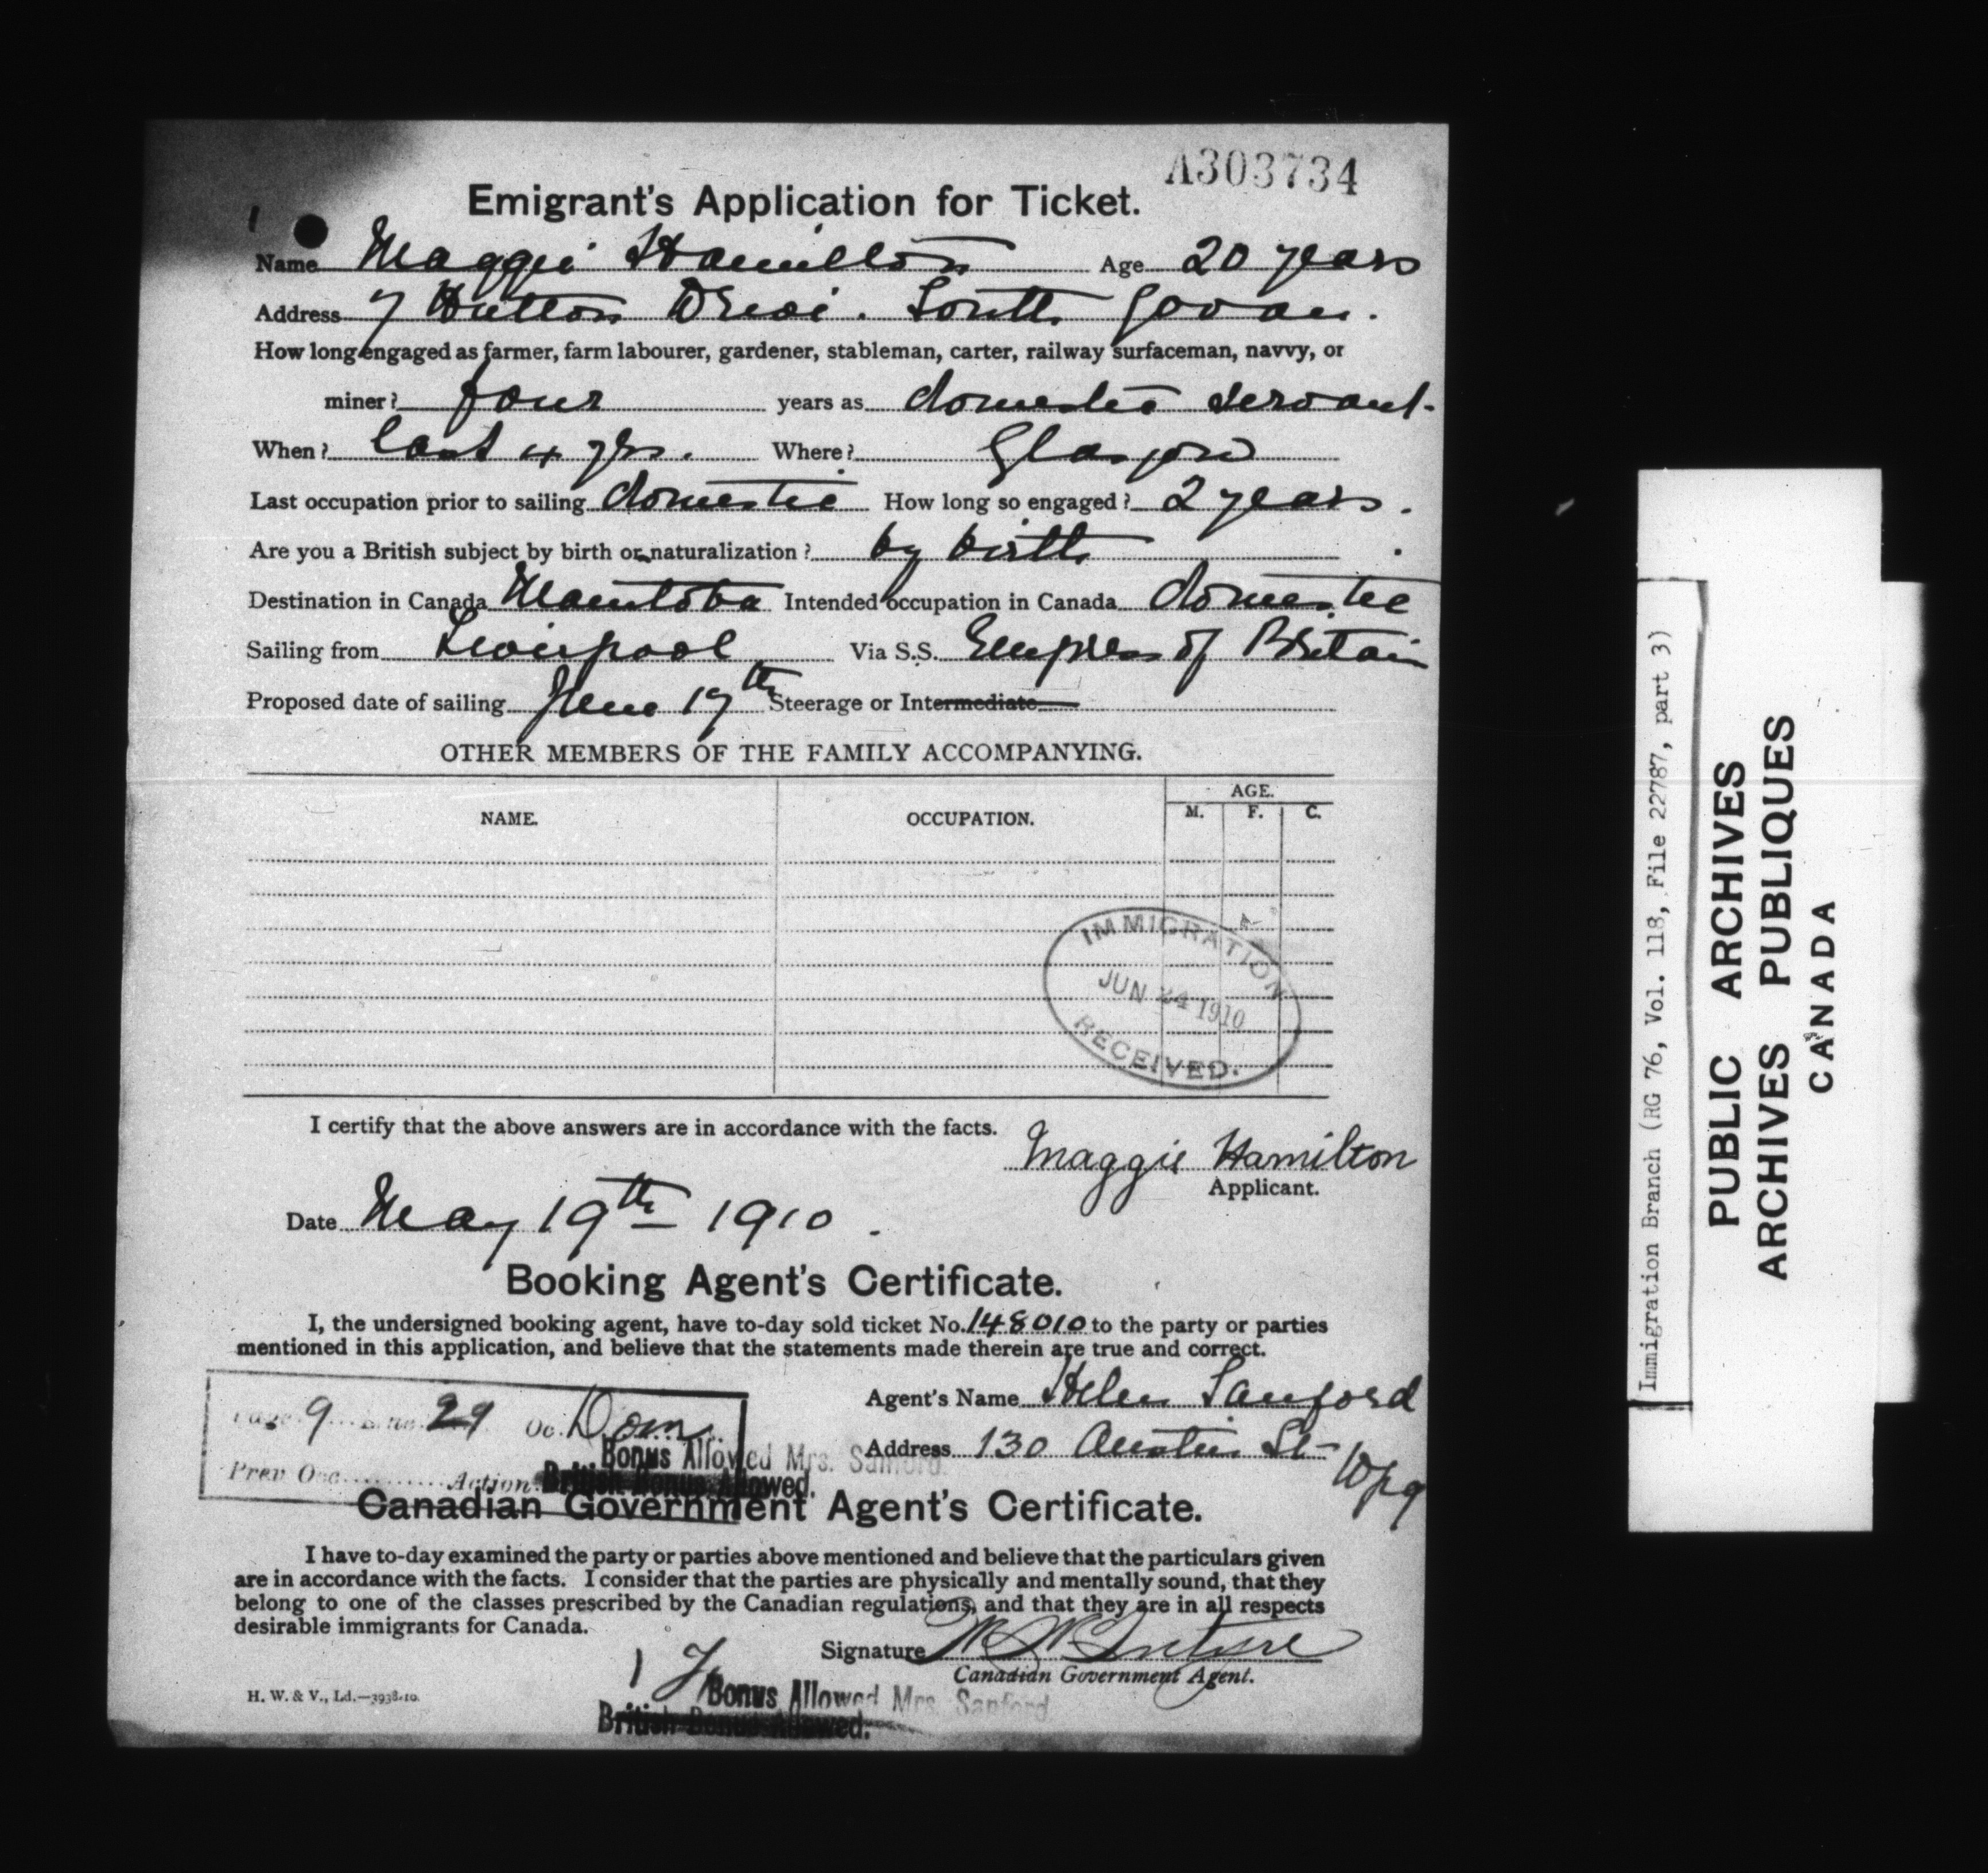 A303734
Emigrant's Application for Ticket.
Name Maggie Hamilton Age 20 years
Address 7 Hutton Drive. South Govan.
How long engaged as farmer, farm labourer, gardener, stableman, carter, railway surfaceman, navvy, or
miner? four years as domestic servant.
When? last 4 yrs. Where? Glasgow
Last occupation prior to sailing domestic How long so engaged? 2 years.
Are you a British subject by birth or naturalization? by birth
Destination in Canada Manitoba Intended occupation in Canada domestic
Sailing from Liverpool Via S.S. Empress of Britain
Proposed date of sailing June 17th Steerage or Intermediate
OTHER MEMBERS OF THE FAMILY ACCOMPANYING.
NAME. OCCUPATION. AGE.
M. F. C.
IMMIGRATION
JUN 24 1910
RECEIVED.
I certify that the above answers are in accordance with the facts.
Maggie Hamilton
Applicant.
Date May 19th 1910.
Booking Agent's Certificate.
I, the undersigned booking agent, have to-day sold ticket No. 148010 to the party or parties
mentioned in this application, and believe that the statements made therein are true and correct.
Agent's Name Helen Sanford
Page 9 Line 29 Oc. Dom
Address 130 Austin St Wpg
Bonus Allowed Mrs. Sanford
Prev Occ. Action British Bonus Allowed.
Canadian Government Agent's Certificate.
I have to-day examined the party or parties above mentioned and believe that the particulars given
are in accordance with the facts. I consider that the parties are physically and mentally sound, that they
belong to one of the classes prescribed by the Canadian regulations, and that they are in all respects
desirable immigrants for Canada.
Signature
Canadian Government Agent.
H. W. & V., Ld.—3938-10.
Bonus Allowed Mrs. Sanford
British Bonus Allowed.
Immigration Branch (RG 76, Vol. 118, File 22787, part 3)
PUBLIC ARCHIVES
ARCHIVES PUBLIQUES
CANADA